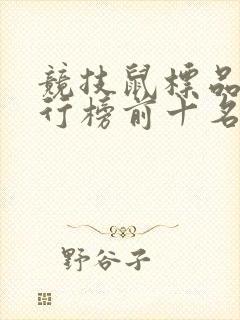 競技鼠標品
行榜前十名
野谷子